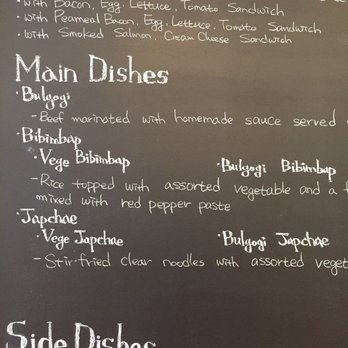 • with Bacon, Egg, Lettuce, Tomato Sandwich
• with Peameal Bacon, Egg, Lettuce, Tomato Sandwich
• with Smoked Salmon, Cream Cheese Sandwich
Main Dishes
• Bulgogi
- Beef marinated with homemade sauce served
• Bibimbap
• Vege Bibimbap • Bulgogi Bibimbap
- Rice topped with assorted vegetable and a f
mixed with red pepper paste
• Japchae
• Vege Japchae • Bulgogi Japchae
- Stir-fried clear noodles with assorted veget
Side Dishes